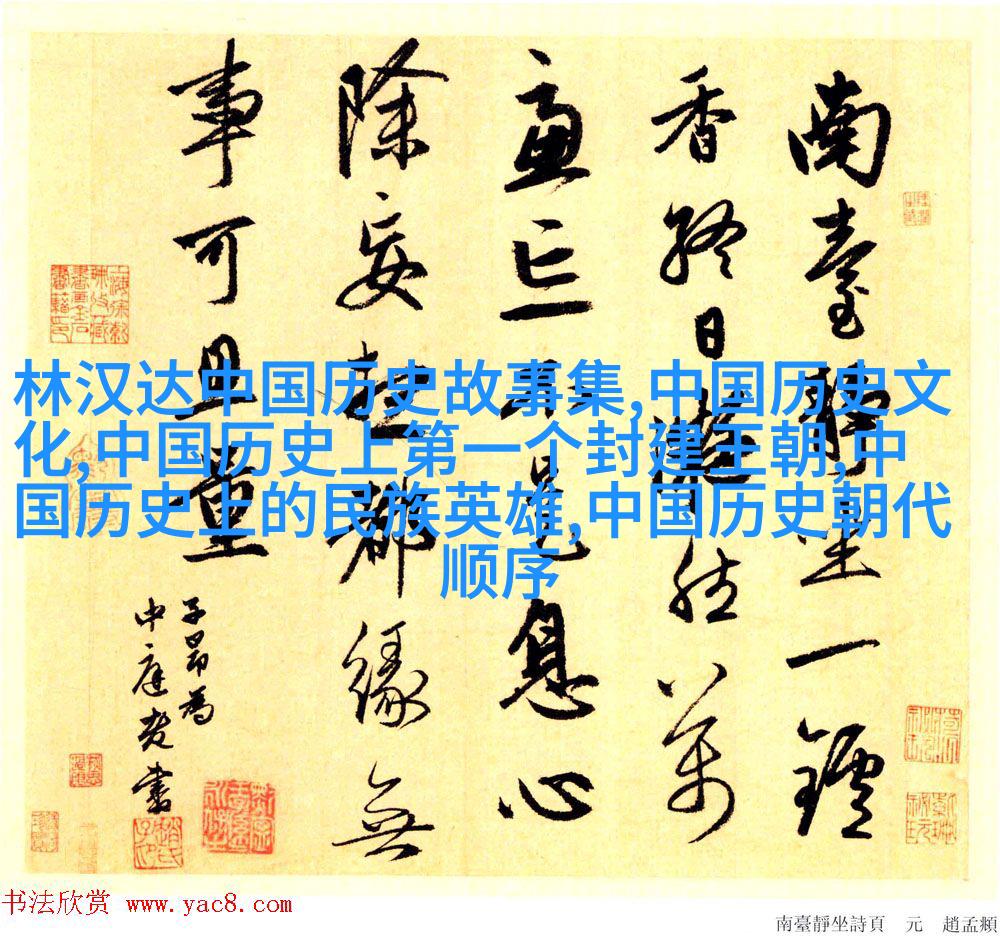 南臺靜坐一鑪
香終日凝然萬
慮亡不是息心
除妄想都緣無
事可思量
子昂為
中庭老書
林汉达中国历史故事集,中国历史文
化,中国历史上第一个封建王朝,中
国历史上的民族英雄,中国历史朝代
顺序
书法欣赏 www.yac8.com
南臺靜坐詩頁 元 趙孟頫